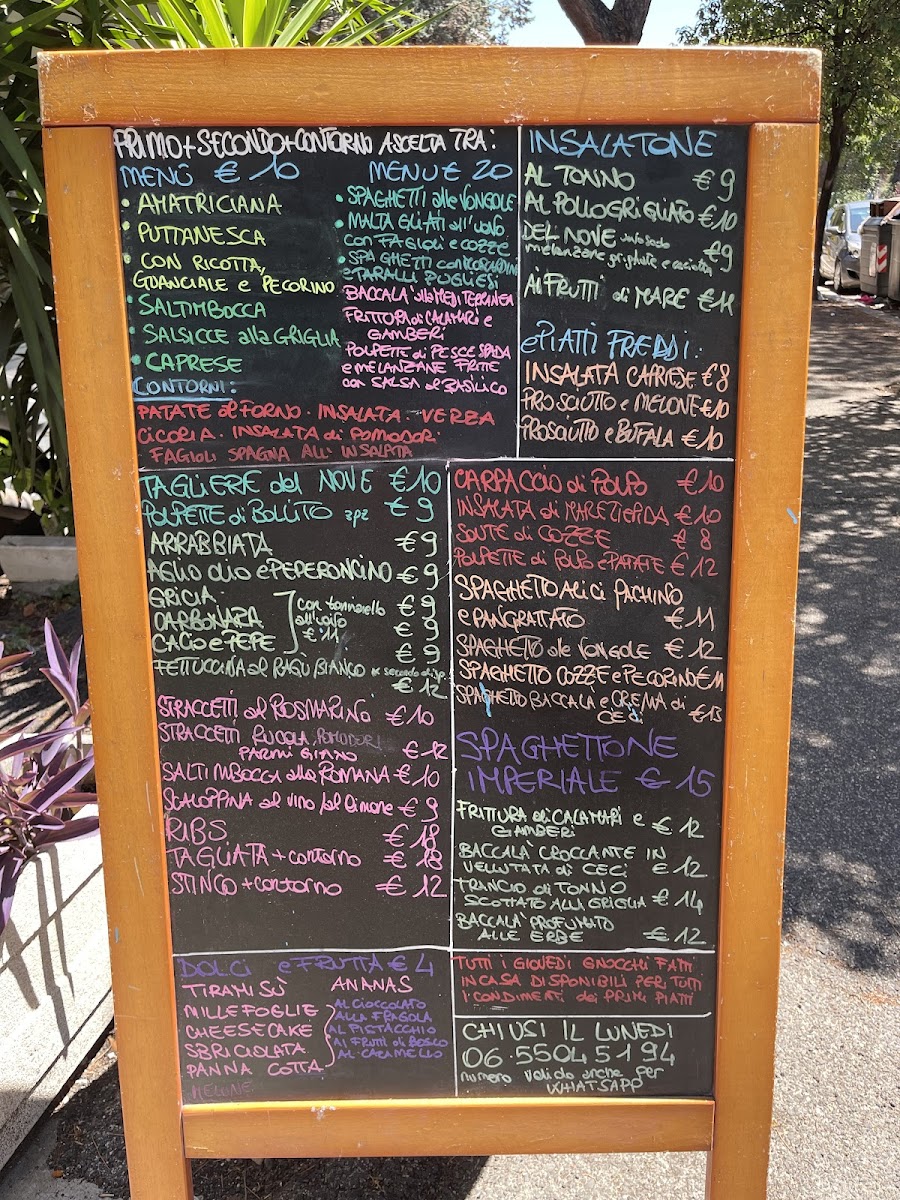 PRIMO+SECONDO+CONTORNO A SCELTA TRA:
MENÙ € 10
• AMATRICIANA
• PUTTANESCA
• CON RICOTTA,
GUANCIALE e PECORINO
• SALTIMBOCCA
• SALSICCE alla GRIGLIA
• CAPRESE
MENU € 20
• SPAGHETTI alle VONGOLE
• MALTAGLIATI all'uovo
con FAGIOLI e COZZE
• SPAGHETTI con
e TARALLI PUGLIESI
BACCALA' alla MEDITERRANEA
FRITTURA di CALAMARI e
GAMBERI
POLPETTE di PESCE SPADA
e MELANZANE FRITTE
con SALSA al BASILICO
CONTORNI:
PATATE al FORNO · INSALATA · VERZA
CICORIA · INSALATA di POMODORI
FAGIOLI SPAGNA ALL' INSALATA
INSALATONE
AL TONNO €9
AL POLLO GRIGLIATO €10
DEL NOVE €9
melanzane grigliate e
Ai FRUTTI di MARE €11
e PIATTI FREDDI:
INSALATA CAPRESE €8
PROSCIUTTO e MELONE €10
PROSCIUTTO e BUFALA €10
TAGLIERE del NOVE €10
POLPETTE di BOLLITO 3pz €9
ARRABBIATA €9
AGLIO OLIO e PEPERONCINO €9
GRICIA €9
CARBONARA €9
CACIO e PEPE €9
con tonnarello
all'uovo
€11
FETTUCCINA al RAGÙ BIANCO x secondo disp.
€12
STRACCETTI al ROSMARINO €10
STRACCETTI RUCOLA, POMODORI
PARMIGIANO €12
SALTIMBOCCA alla ROMANA €10
SCALOPPINA al vino/al limone €9
RIBS €18
TAGLIATA + contorno €18
STINCO + contorno €12
CARPACCIO di POLPO €10
INSALATA di MARE TIEPIDA €10
SOUTE di COZZE € 8
POLPETTE di POLPO e PATATE €12
SPAGHETTO ALICI PACHINO
e PANGRATTATO €11
SPAGHETTO alle VONGOLE €12
SPAGHETTO COZZE e PECORINO €11
SPAGHETTO BACCALÀ e CREMA di
CECI €13
SPAGHETTONE
IMPERIALE € 15
FRITTURA di CALAMARI e
GAMBERI €12
BACCALA' CROCCANTE IN
VELLUTATA di CECI €12
TRANCIO di TONNO
SCOTTATO ALLA GRIGLIA €14
BACCALA' PROFUMATO
ALLE ERBE €12
DOLCI e FRUTTA € 4
TIRAMISÙ ANANAS
MILLEFOGLIE
CHEESECAKE
SBRICIOLATA
PANNA COTTA
MELONE
AL CIOCCOLATO
ALLA FRAGOLA
AL PISTACCHIO
AI FRUTTI di BOSCO
AL CARAMELLO
TUTTI I GIOVEDÌ GNOCCHI FATTI
IN CASA DISPONIBILI PER TUTTI
I CONDIMENTI dei PRIMI PIATTI
CHIUSI IL LUNEDI
06.55045194
numero valido anche per
WHATSAPP